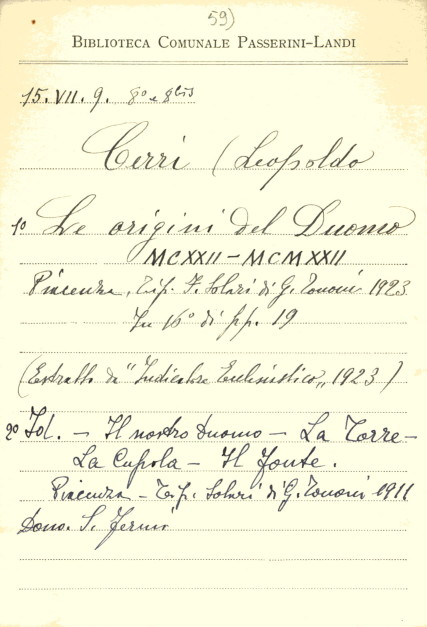 59)
BIBLIOTECA COMUNALE PASSERINI-LANDI
15. VII. 9. 8º e 8bis
Cerri (Leopoldo
1º Le origini del Duomo
MCXXII - MCMXXII
Piacenza, Tip. F. Solari di G. Tononi 1923
In 16º di pp. 19
(Estratto da "Indicatore Ecclesiastico", 1923)
2º Id. - Il nostro Duomo - La Torre -
La Cupola - Il fonte.
Piacenza - Tip. Solari di G. Tononi 1911
Dono. S. Fermi